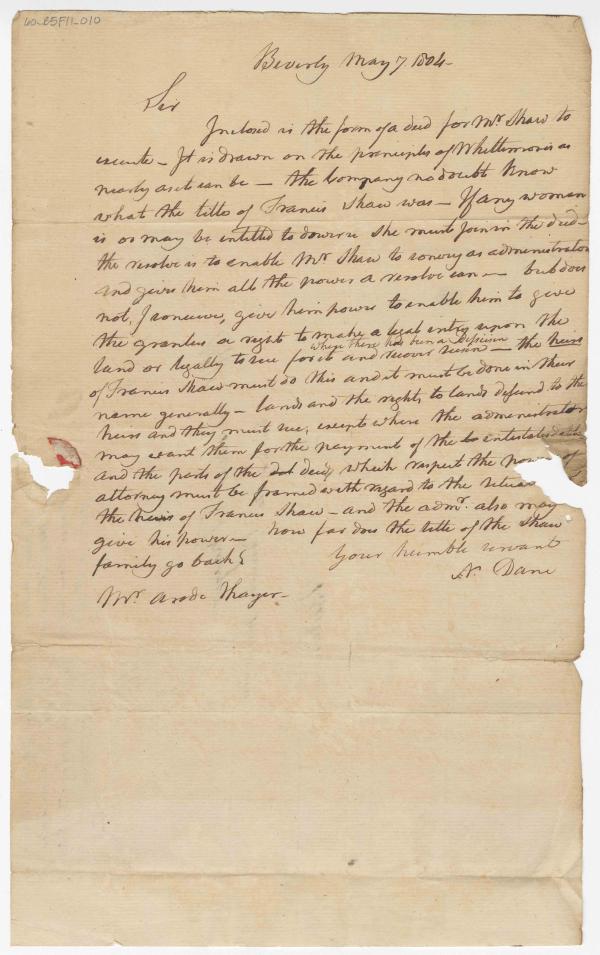 60_25F11_010
Beverly May 7 1804-
Sir
Inclosed is the form of a deed for Mr Shaw to
execute - It is drawn on the principles of Whittemores as
nearly as it can be - the Company no doubt know
what the title of Francis Shaw was - If any woman
is or may be entitled to dower in she must join in the deed -
the resolve is to enable Mr Shaw to convey as administrator
and gives him all the power a resolve can - but does
not, I conceive, give him power to enable him to give
the grantees a right to make a legal entry upon the
where there has been a disseisin
land or legally to sue for it and recover seisin - the heirs
of Francis Shaw must do this and it must be done in their
name generally - lands and the rights to lands descend to the
heirs and they must sue, except where the administrator
may want them for the payment of the intestates debts
and the parts of the deed which respect the power of
attorney must be framed with regard to the
the heirs of Francis Shaw - and the admr. also may
give his power - how far does the title of the Shaw
family go back?
Your humble servant
N. Dane
Mr. Thayer -